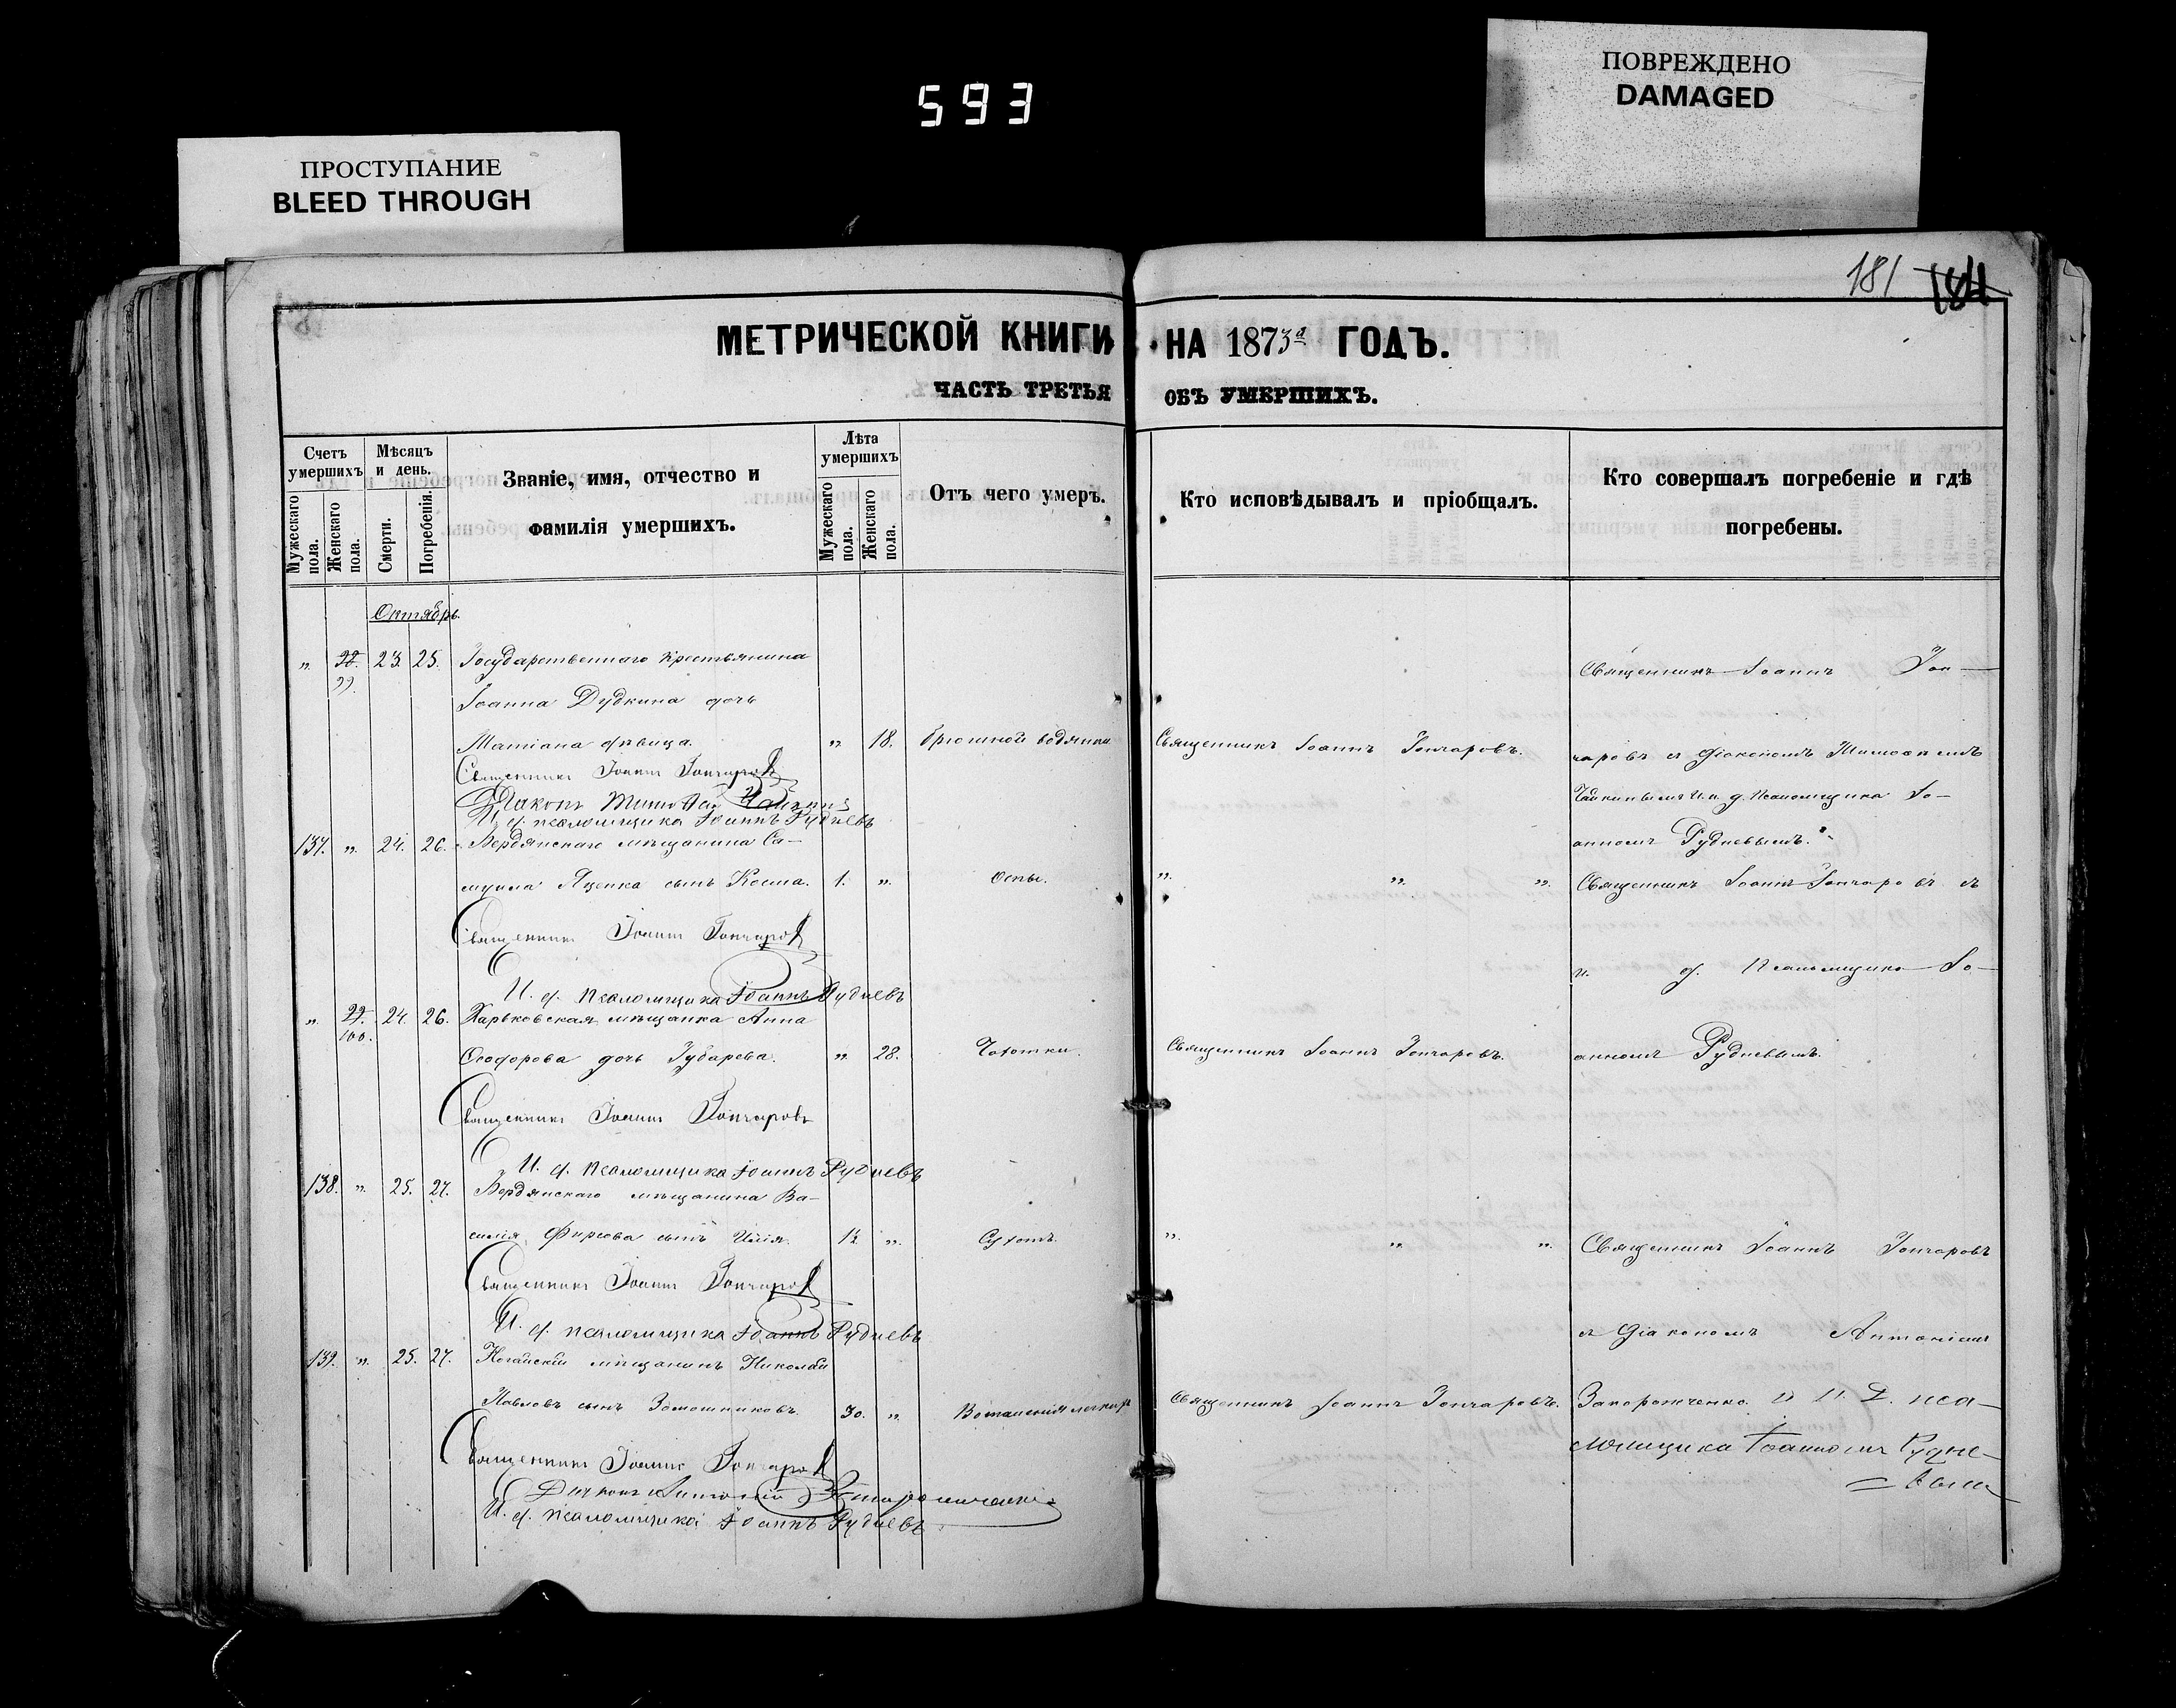 593
ПОВРЕЖДЕНО
DAMAGED
ПРОСТУПАНИЕ
BLEED THROUGH
181 184
МЕТРИЧЕСКОЙ КНИГИ НА 1873й ГОДЪ.
ЧАСТЬ ТРЕТЬЯ ОБЪ УМЕРШИХЪ.
Счетъ умершихъ
Мужескаго пола.
Женскаго пола.
Мѣсяцъ и день.
Смерти.
Погребенія.
Званіе, имя, отчество и
фамилія умершихъ.
Лѣта умершихъ
Мужескаго пола.
Женскаго пола.
Отъ чего умеръ.
Кто исповѣдывалъ и пріобщалъ.
Кто совершалъ погребеніе и гдѣ
погребены.
Октябрь.
„ 98. 23. 25. Государственнаго крестьянина
99.
Священникъ Іоаннъ Гон—
Іоанна Дудкина дочь
Татіана дѣвица. „ 18. Брюшной водянки Священникъ Іоаннъ Гончаровъ.
чаровъ съ діакономъ Тимоѳеемъ
Священникъ Іоаннъ Гончаровъ
Чайкинымъ и и. д. псаломщика Іо—
Діаконъ Тимоѳей Чайкинъ
И. д. псаломщика Іоаннъ Рудневъ
анномъ Рудневымъ.
137. „ 24. 26. Бердянскаго мѣщанина Са—
муила Яценка сынъ Косма. 1. „ Оспы. „ „ „
Священникъ Іоаннъ Гончаровъ съ
Священникъ Іоаннъ Гончаровъ
и. д. псаломщика Іо—
И. д. псаломщика Іоаннъ Рудневъ
„ 99. 24. 26. Харьковская мѣщанка Анна
100.
Ѳеодорова дочь Зубарева. „ 28. Чахотки. Священникъ Іоаннъ Гончаровъ.
анномъ Рудневымъ.
Священникъ Іоаннъ Гончаровъ
И. д. псаломщика Іоаннъ Рудневъ
138. „ 25. 27. Бердянскаго мѣщанина Ва—
силія Фирсова сынъ Илія. „ Сухотъ. „ „ „
Священникъ Іоаннъ Гончаровъ
Священникъ Іоаннъ Гончаровъ
И. д. псаломщика Іоаннъ Рудневъ
съ діакономъ Антоніемъ
139. „ 25. 27. Ногайскій мѣщанинъ Николай
Павловъ сынъ 30. „ Священникъ Іоаннъ Гончаровъ.
и И. Д. пса—
Священникъ Іоаннъ Гончаровъ
ломщика Іоанномъ Рудне—
вымъ
Діаконъ Антоній
И. д. псаломщика Іоаннъ Рудневъ